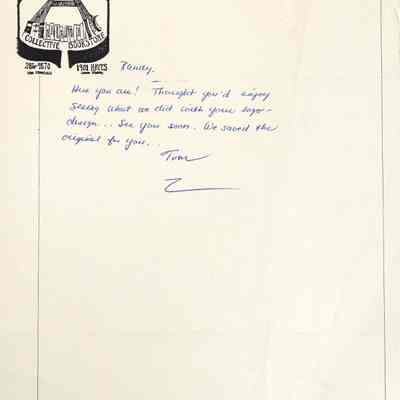 COLLECTIVE BOOKSTORE
SAN FRANCISCO
1901 HAYES
Randy,
Here you are! Thought you'd enjoy
seeing what we did with your logo-
design... See you soon. We saved the
original for you...
Tom